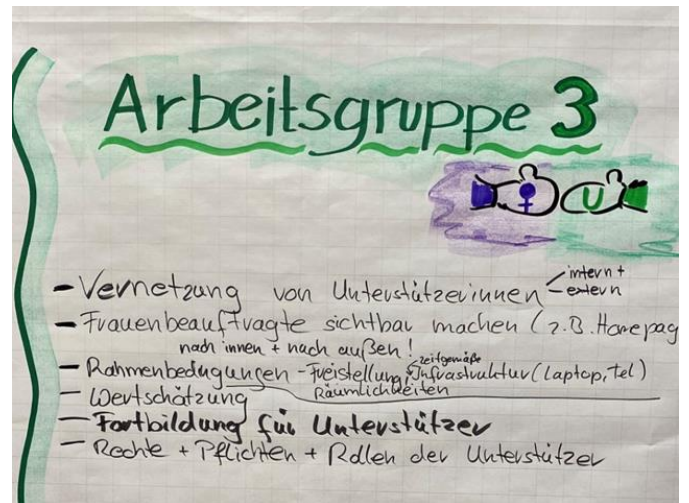 Arbeitsgruppe 3
U
- Vernetzung von Unterstützerinnen - intern +
- extern
- Frauenbeauftragte sichtbar machen (z.B. Homepag
nach innen + nach außen!
- Rahmenbedingungen - Freistellung, zeitgemäße Infrastruktur (Laptop, Tel)
Räumlichkeiten
- Wertschätzung
- Fortbildung für Unterstützer
- Rechte + Pflichten + Rollen der Unterstützer